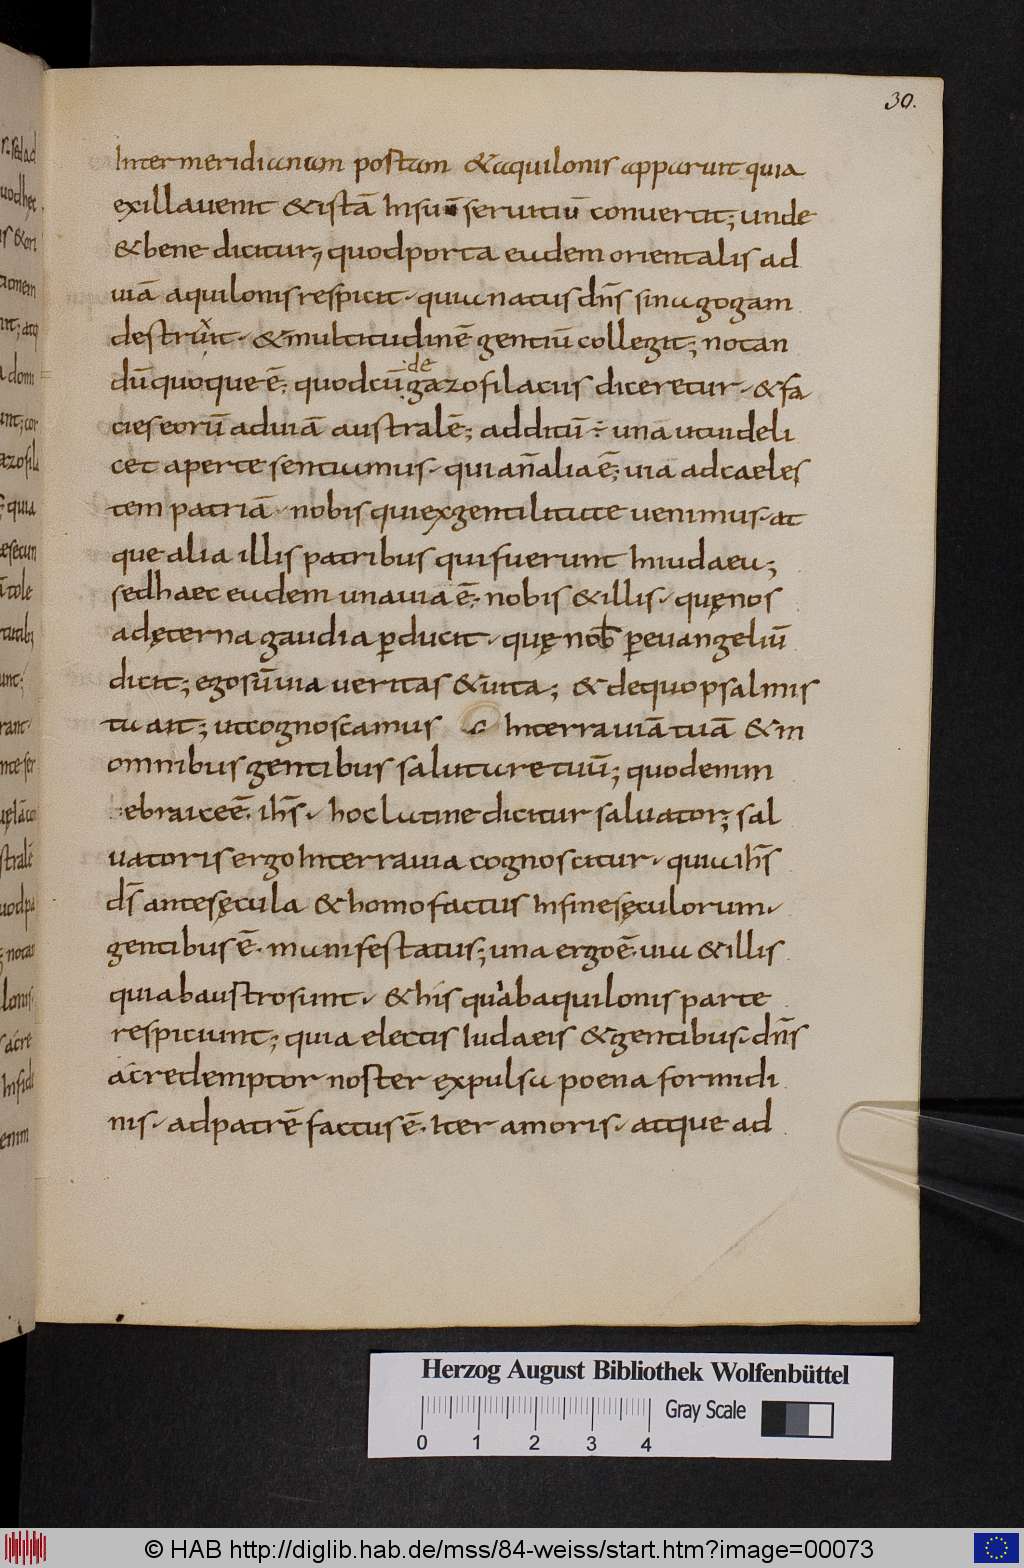 30.
Inter meridianum postam & aquilonis apparuit quia
exilla uenit & istā Insuū seruitiū conuertit; unde
& bene dicitur; quod porta eadem orientalis ad
uiā aquilonis respicit. quia natus dn̄s sinagogam
destruxit. & multitudinē gentiū collegit; notan
dū quoque ē. quod cū de gazofilacus diceretur. & fa
cies eorū ad uiā australē; additū ÷ una ut uideli
cet aperte sentiamus. quia n̄ alia ē; uia ad caeles
tem patriā. nobis qui ex gentilitate uenimus. at
que alia illis patribus qui fuerunt Iniudaea;
sed haec eadem una uia ē. nobis & illis. quę nos
ad ęterna gaudia ꝑducit. quę nob̄ ꝑ euangeliū
dicit; ego sū uia ueritas & uita; & de quo psalmis
ta ait; ut cognoscamus Interra uiā tuā & in
omnibus gentibus salutare tuū; quod enim
ebraice ē. ih̄s. hoc latine dicitur saluator; sal
uatoris ergo Interra uia cognoscitur. quia ih̄s
d̄s ante sęcula & homo factus Infine sęculorum.
gentibus ē. manifestatus; una ergo ē. uia & illis
qui ab austro sunt. & his qui ab aquilonis parte
respiciunt; quia electis Iudaeis & gentibus. dn̄s
ac redemptor noster expulsa poena formidi
nis. ad patrē factus ē. Iter amoris. atque ad
Herzog August Bibliothek Wolfenbüttel
Gray Scale
0 1 2 3 4
© HAB http://diglib.hab.de/mss/84-weiss/start.htm?image=00073